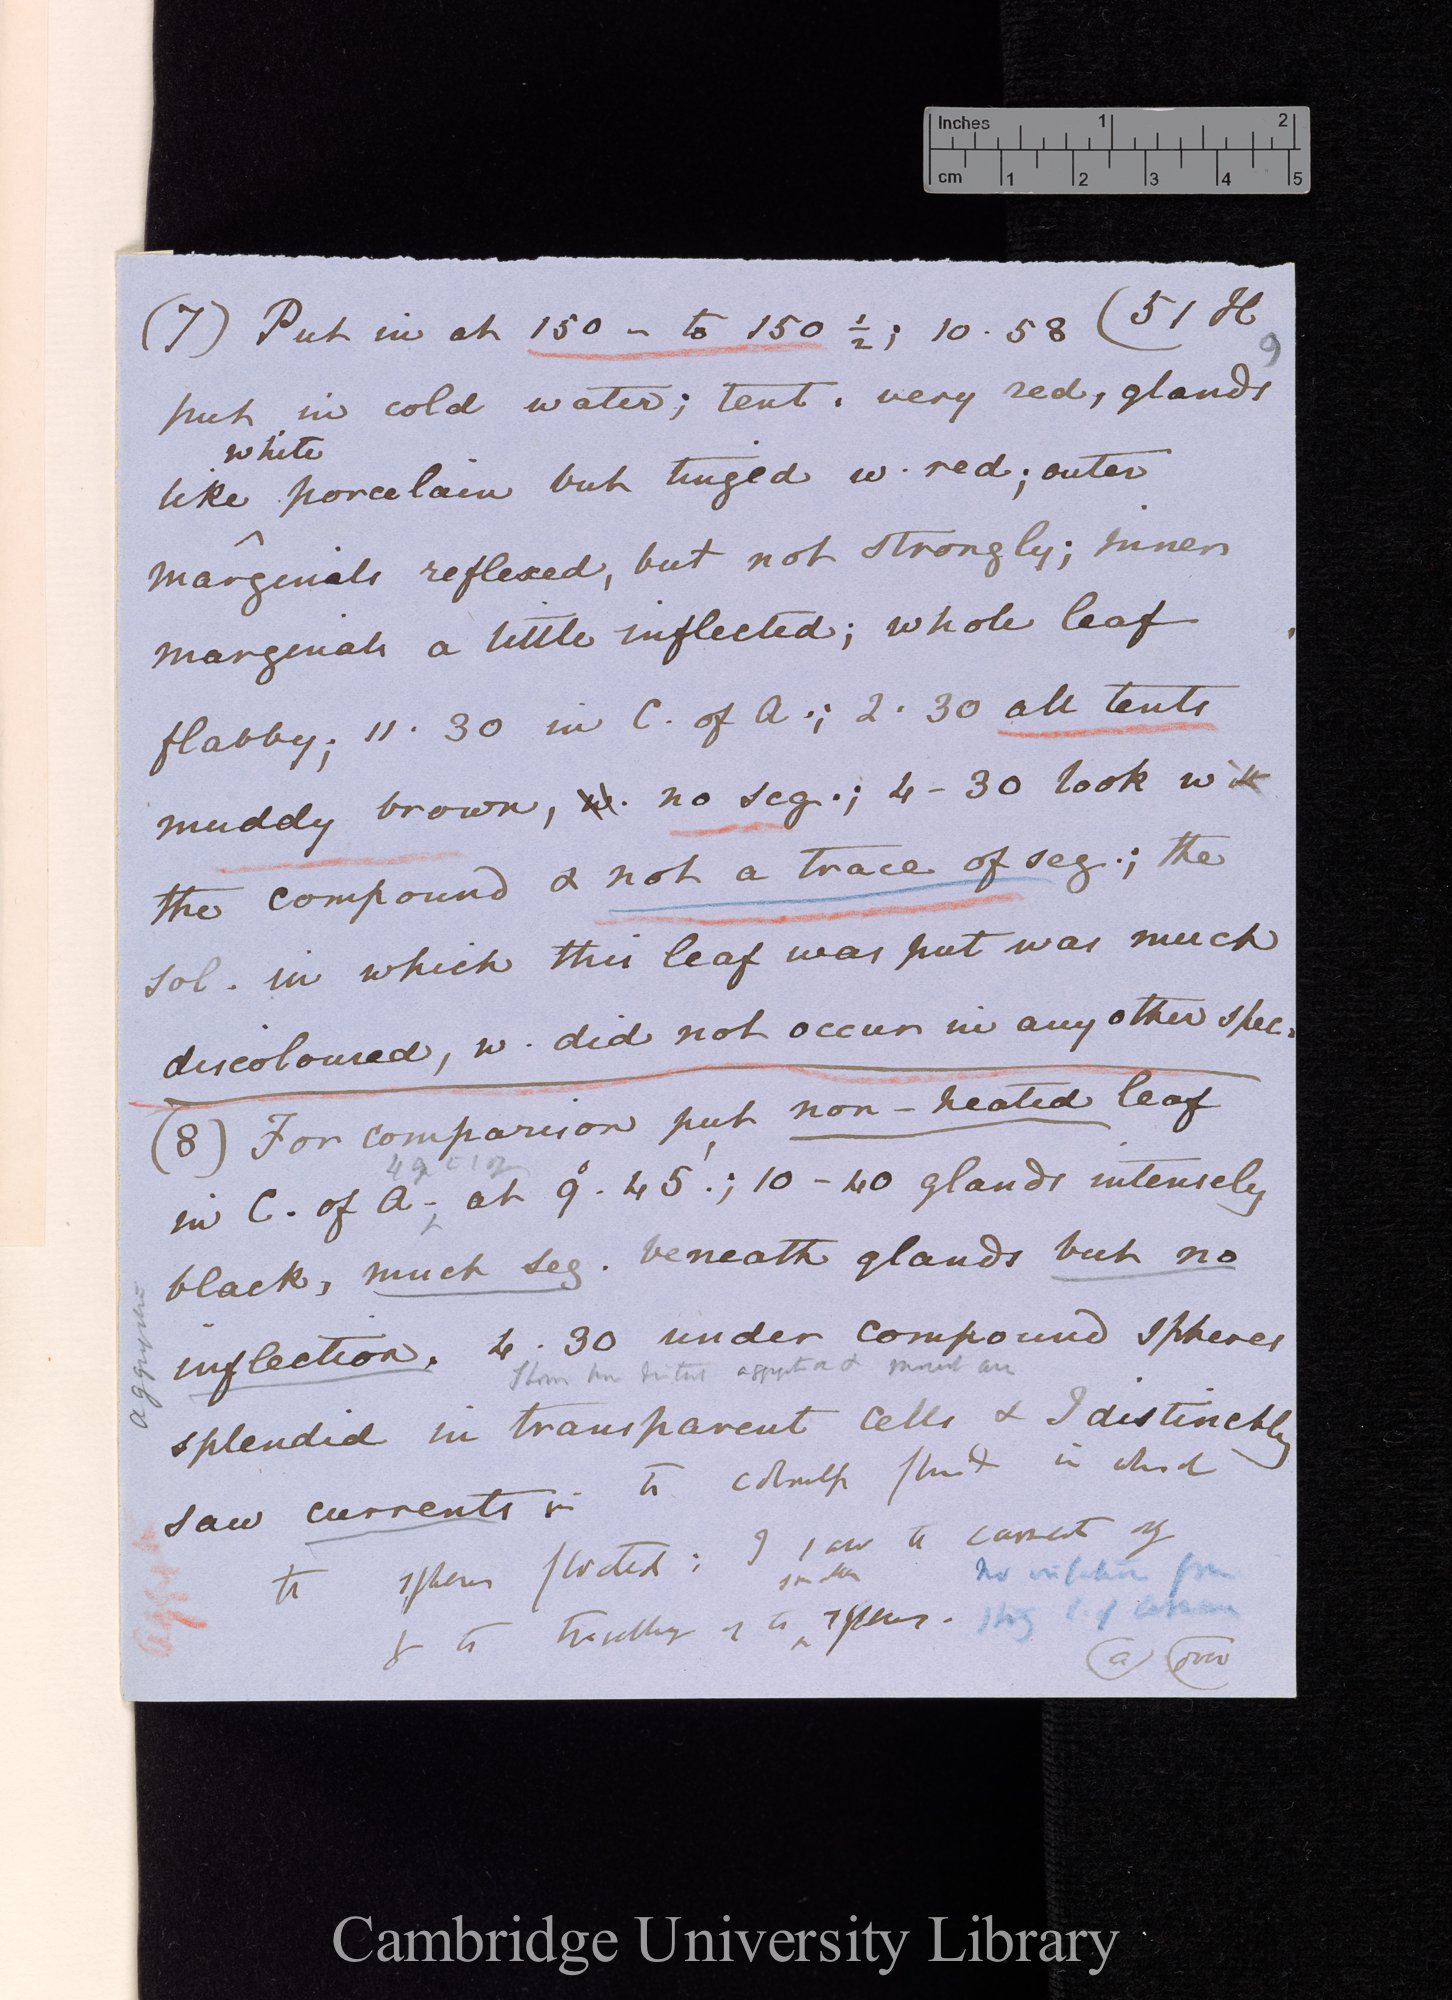 Inches 1 2
cm 1 2 3 4 5
(7) Put in at 150 - to 150 ½; 10·58 (51 H
9
put in cold water; tent. very red, glands
white
like porcelain but tinged w. red; outer
marginals reflexed, but not strongly; inner
marginals a little inflected; whole leaf
flabby; 11·30 in C. of A.; 2·30 all tents
muddy brown, w. no seg.; 4-30 look with
the compound & not a trace of seg.; the
sol. in which this leaf was put was much
discoloured, w. did not occur in any other spec.
(8) For comparison put non-heated leaf
in C. of A. at 9°.45'.; 10-40 glands intensely
black, much seg. beneath glands but no
inflection. 4·30 under compound spheres
splendid in transparent cells & I distinctly
saw currents in fluid in which
spheres floated; I saw current
smaller
spheres.
No from
(a) (over
Cambridge University Library